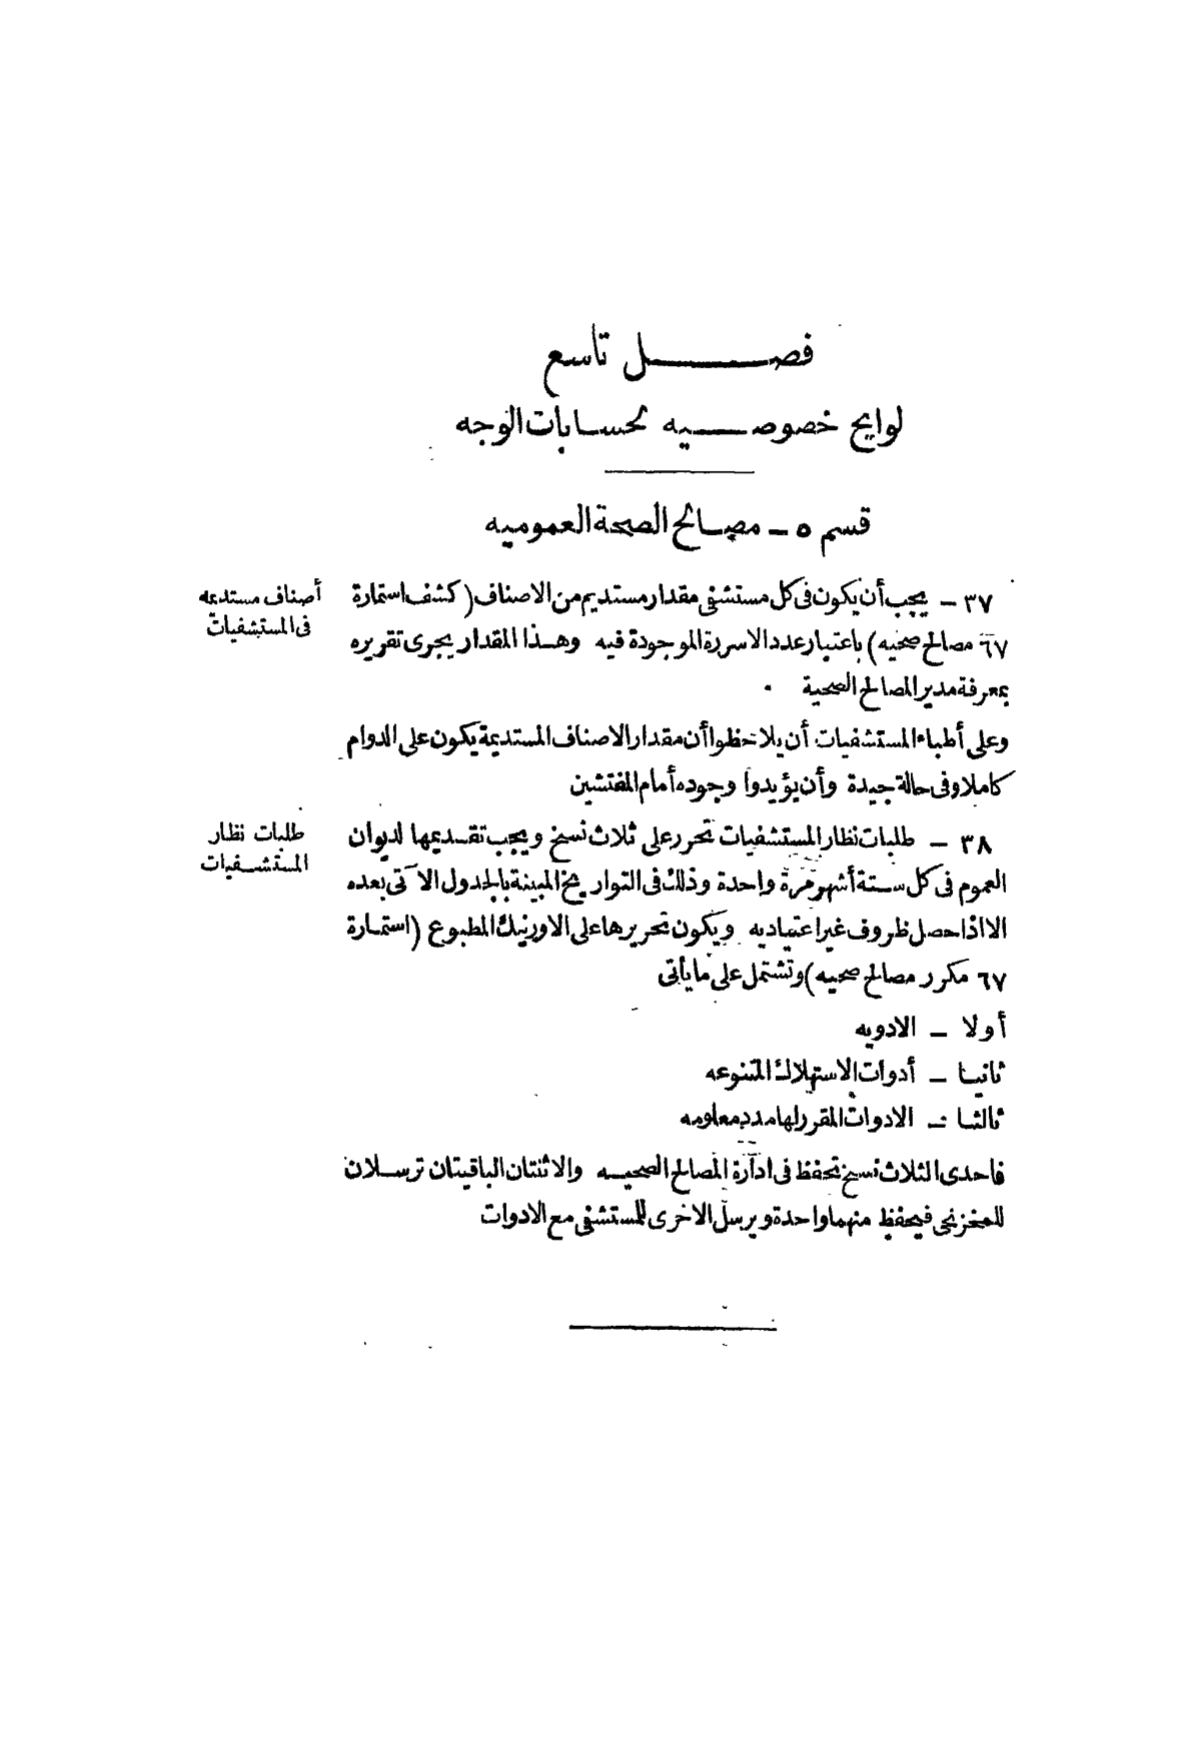 فصل تاسع
لوايح خصوصيه لحسابات الوجه
قسم ٥ – مصالح الصحة العموميه
٣٧ – يجب أن يكون فى كل مستشفى مقدار مستديم من الاصناف (كشف استمارة
أصناف مستديمه
٦٧ مصالح صحيه) باعتبار عدد الاسررة الموجودة فيه وهذا المقدار يجرى تقريره
فى المستشفيات
بمعرفة مدير المصالح الصحية .
وعلى أطباء المستشفيات أن يلاحظوا أن مقدار الاصناف المستديمة يكون على الدوام
كاملا وفى حالة جيدة وأن يؤيدوا وجوده أمام المفتشين
٣٨ – طلبات نظار المستشفيات تحرر على ثلاث نسخ ويجب تقديمها لديوان
طلبات نظار
العموم فى كل ستة أشهر مرة واحدة وذلك فى التواريخ المبينة بالجدول الآتى بعده
المستشفيات
الا اذا حصل ظروف غير اعتياديه ويكون تحريرها على الاورنيك المطبوع (استمارة
٦٧ مكرر مصالح صحيه) وتشتمل على ما يأتى
أولا – الادويه
ثانيا – أدوات الاستهلاك المتنوعه
ثالثا – الادوات المقرر لها مدد معلومه
فاحدى الثلاث نسخ تحفظ فى ادارة المصالح الصحيه والاثنتان الباقيتان ترسلان
للمخزنجى فيحفظ منهما واحدة ويرسل الاخرى للمستشفى مع الادوات